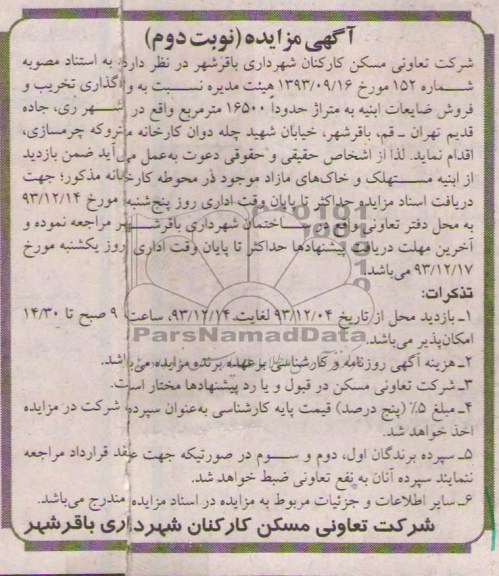 آگهی مزایده (نوبت دوم)
شرکت تعاونی مسکن کارکنان شهرداری باقرشهر در نظر دارد: به استناد مصوبه
شماره ۱۵۲ مورخ ۱۳۹۳/۰۹/۱۶ هیئت مدیره نسبت به واگذاری تخریب و
فروش ضایعات ابنیه به متراژ حدوداً ۱۶۵۰۰ مترمربع واقع در شهر ری، جاده
قدیم تهران ـ قم، باقرشهر، خیابان شهید چله دوان کارخانه متروکه چرمسازی،
اقدام نماید. لذا از اشخاص حقیقی و حقوقی دعوت به‌عمل می‌آید ضمن بازدید
از ابنیه مستهلک و خاک‌های مازاد موجود در محوطه کارخانه مذکور؛ جهت
دریافت اسناد مزایده حداکثر تا پایان وقت اداری روز پنج‌شنبه مورخ ۹۳/۱۲/۱۴
به محل دفتر تعاونی واقع در ساختمان شهرداری باقرشهر مراجعه نموده و
آخرین مهلت دریافت پیشنهادها حداکثر تا پایان وقت اداری روز یکشنبه مورخ
۹۳/۱۲/۱۷ می‌باشد.
تذکرات:
۱ـ بازدید محل از تاریخ ۹۳/۱۲/۰۴ لغایت ۹۳/۱۲/۱۴، ساعت ۹ صبح تا ۱۴/۳۰
امکان‌پذیر می‌باشد.
۲ـ هزینه آگهی روزنامه و کارشناسی برعهده برنده مزایده می‌باشد.
۳ـ شرکت تعاونی مسکن در قبول و یا رد پیشنهادها مختار است.
۴ـ مبلغ ۵٪ (پنج درصد) قیمت پایه کارشناسی به‌عنوان سپرده شرکت در مزایده
اخذ خواهد شد.
۵ـ سپرده برندگان اول، دوم و سوم در صورتیکه جهت عقد قرارداد مراجعه
ننمایند سپرده آنان به نفع تعاونی ضبط خواهد شد.
۶ـ سایر اطلاعات و جزئیات مربوط به مزایده در اسناد مزایده مندرج می‌باشد.
شرکت تعاونی مسکن کارکنان شهرداری باقرشهر
ParsNamadData